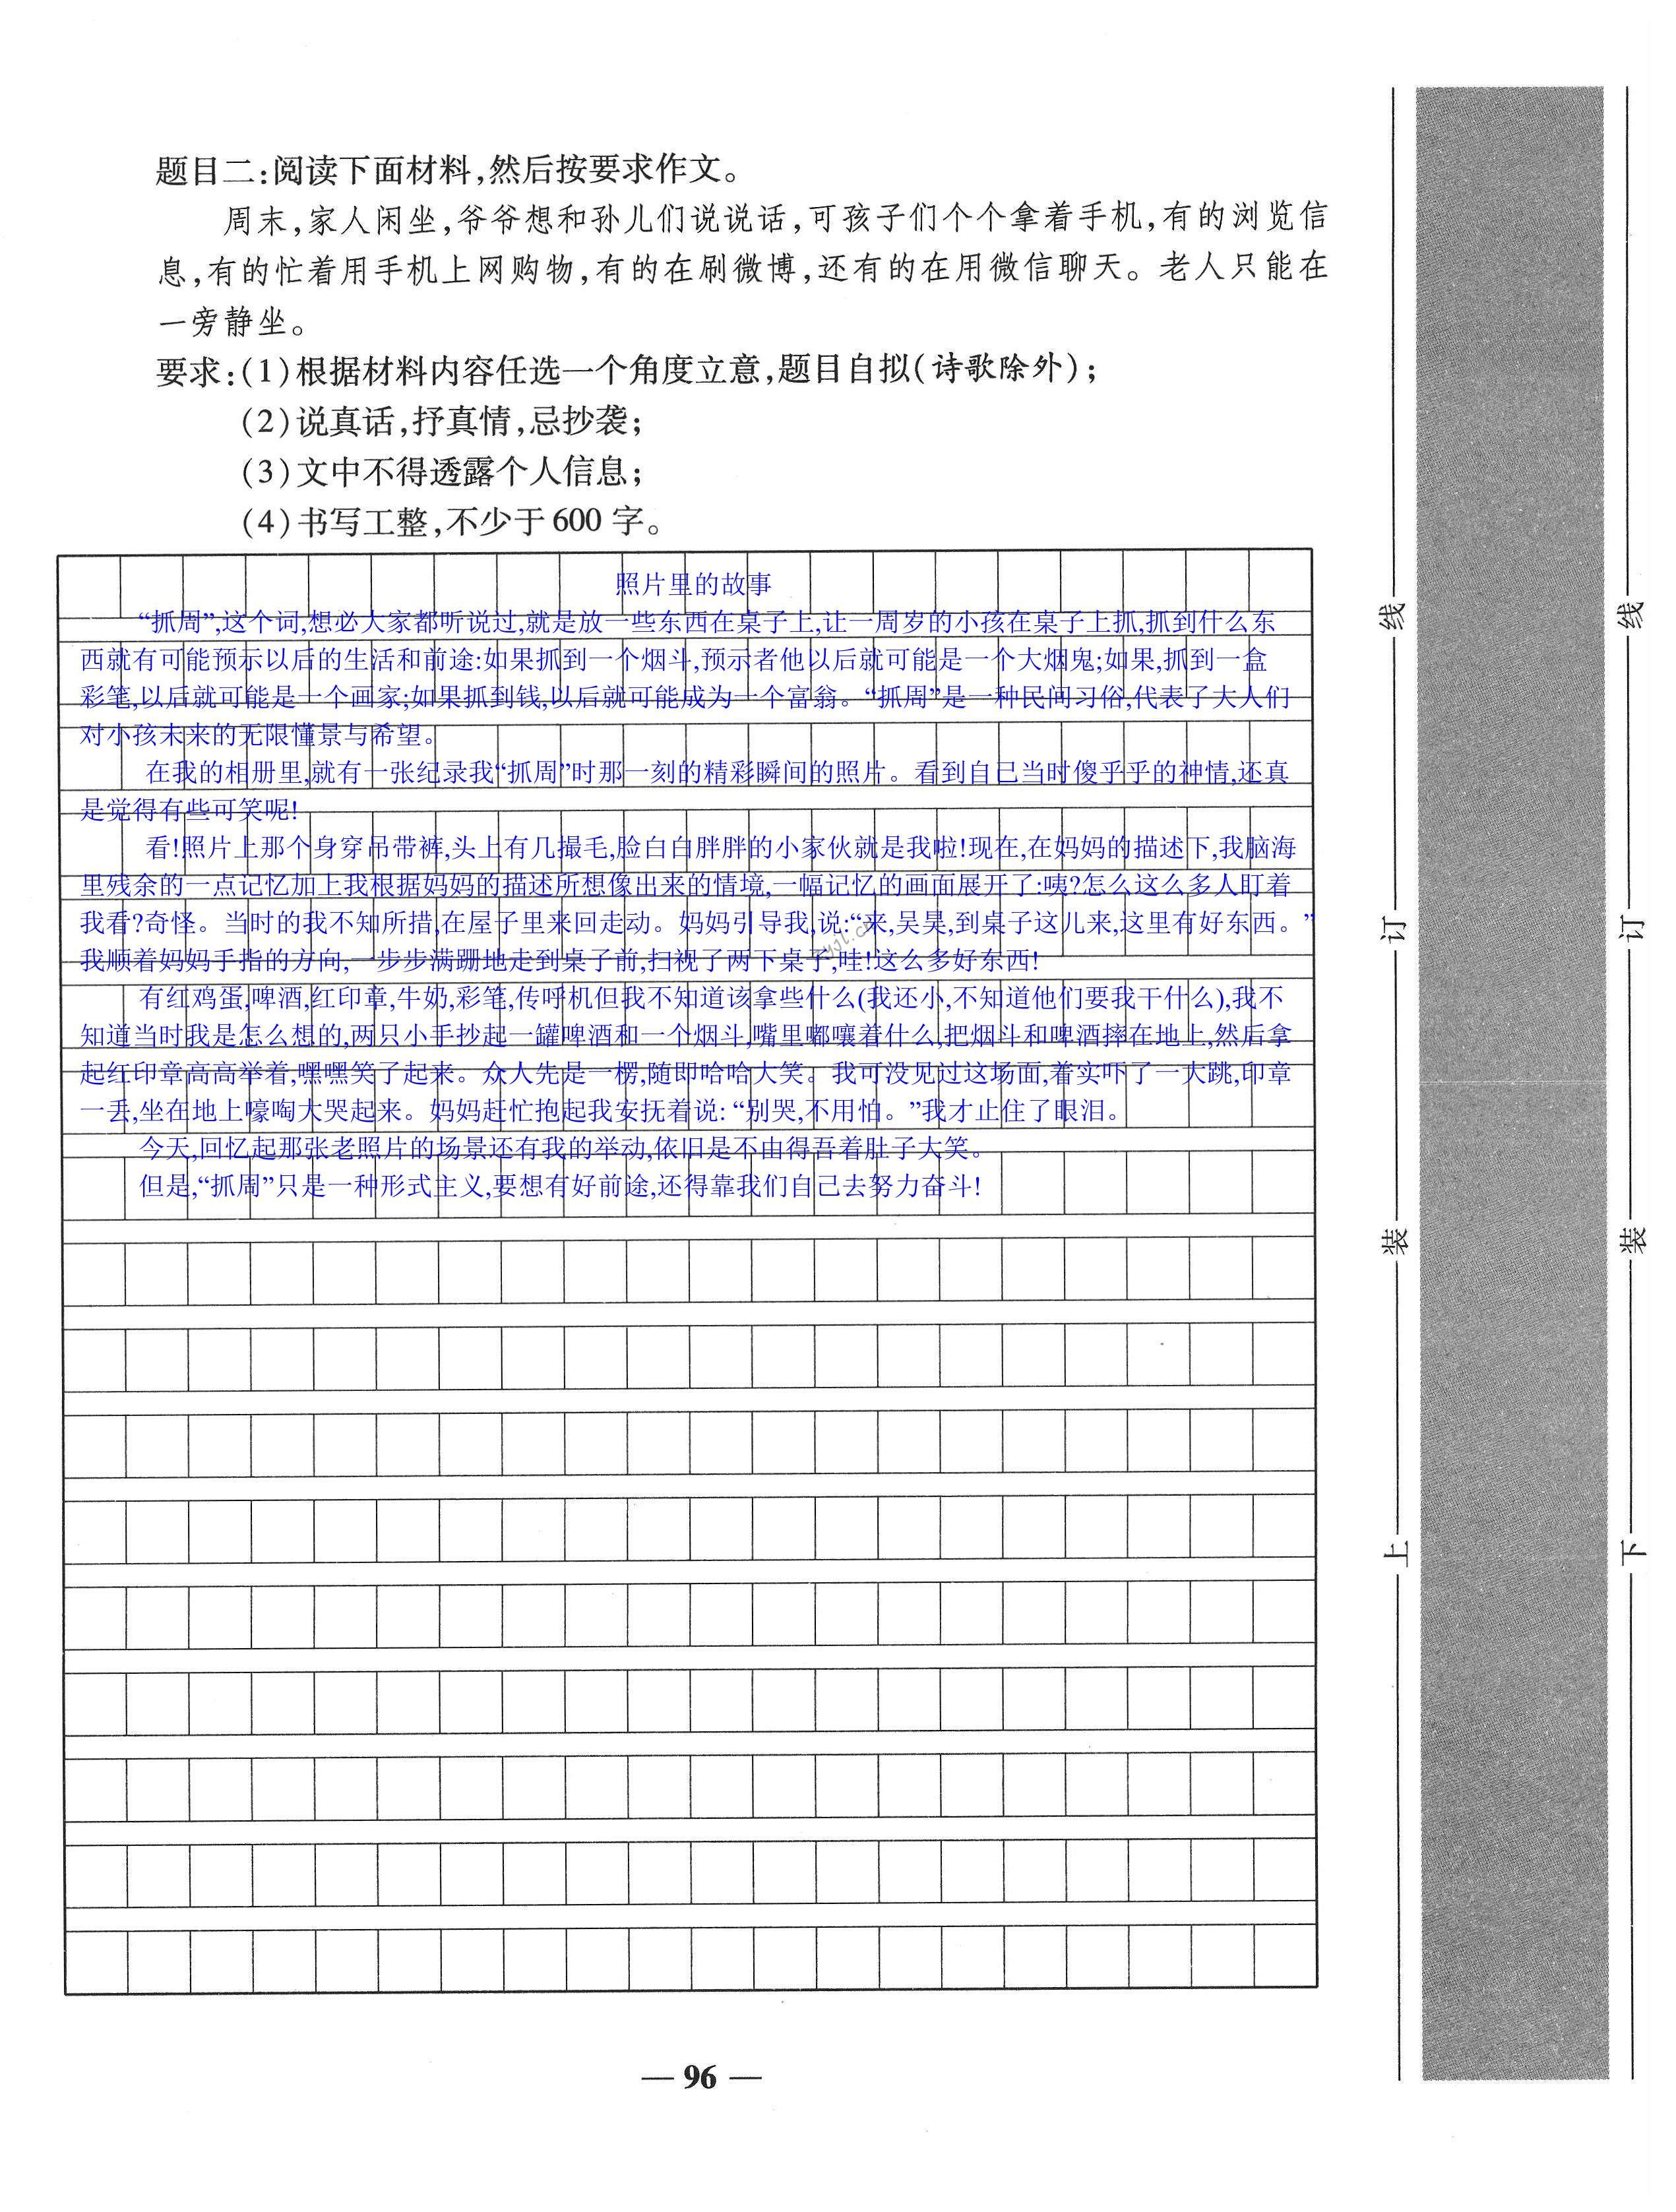 题目二:阅读下面材料,然后按要求作文。
周末,家人闲坐,爷爷想和孙儿们说说话,可孩子们个个拿着手机,有的浏览信
息,有的忙着用手机上网购物,有的在刷微博,还有的在用微信聊天。老人只能在
一旁静坐。
要求:(1)根据材料内容任选一个角度立意,题目自拟(诗歌除外);
(2)说真话,抒真情,忌抄袭;
(3)文中不得透露个人信息;
(4)书写工整,不少于600字。
照片里的故事
“抓周”,这个词,想必大家都听说过,就是放一些东西在桌子上,让一周岁的小孩在桌子上抓,抓到什么东
西就有可能预示以后的生活和前途:如果抓到一个烟斗,预示者他以后就可能是一个大烟鬼;如果,抓到一盒
彩笔,以后就可能是一个画家;如果抓到钱,以后就可能成为一个富翁。“抓周”是一种民间习俗,代表了大人们
对小孩未来的无限憧景与希望。
在我的相册里,就有一张纪录我“抓周”时那一刻的精彩瞬间的照片。看到自己当时傻乎乎的神情,还真
是觉得有些可笑呢!
看!照片上那个身穿吊带裤,头上有几撮毛,脸白白胖胖的小家伙就是我啦!现在,在妈妈的描述下,我脑海
里残余的一点记忆加上我根据妈妈的描述所想像出来的情境,一幅记忆的画面展开了:咦?怎么这么多人盯着
我看?奇怪。当时的我不知所措,在屋子里来回走动。妈妈引导我,说:“来,吴昊,到桌子这儿来,这里有好东西。”
我顺着妈妈手指的方向,一步步满跚地走到桌子前,扫视了两下桌子,哇!这么多好东西!
有红鸡蛋,啤酒,红印章,牛奶,彩笔,传呼机但我不知道该拿些什么(我还小,不知道他们要我干什么),我不
知道当时我是怎么想的,两只小手抄起一罐啤酒和一个烟斗,嘴里嘟嚷着什么,把烟斗和啤酒摔在地上,然后拿
起红印章高高举着,嘿嘿笑了起来。众人先是一楞,随即哈哈大笑。我可没见过这场面,着实吓了一大跳,印章
一丢,坐在地上嚎啕大哭起来。妈妈赶忙抱起我安抚着说:“别哭,不用怕。”我才止住了眼泪。
今天,回忆起那张老照片的场景还有我的举动,依旧是不由得吾着肚子大笑。
但是,“抓周”只是一种形式主义,要想有好前途,还得靠我们自己去努力奋斗!
— 96 —
线
订
装
上
线
订
装
下